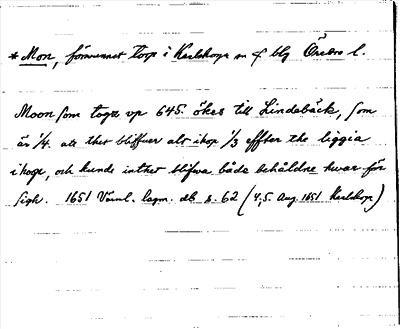 * Mon, försvunnet torp i Karlskoga sn o bg Örebro l.
Moon som togz vp 645. ökes till Lindebäck, som
är 1/4. att thet bliffuer alt ihop 1/3 effter the liggia
ihoga, och kunde inthet blifwa både behåldne hwar för
sigh. 1651 Värml. lagm. db s. 62 (4,5. Aug. 1651 Karlskoga)